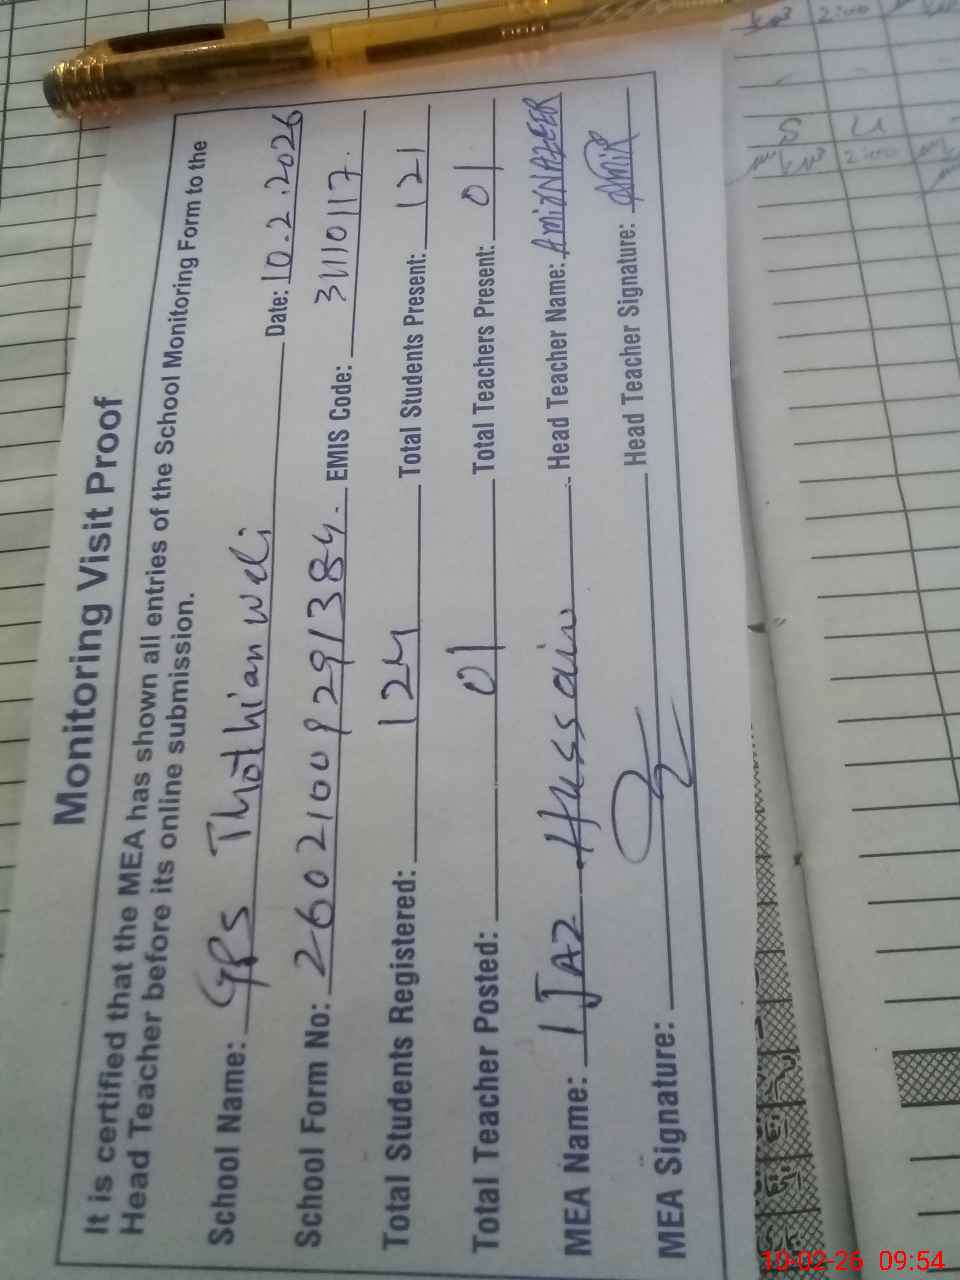 Monitoring Visit Proof
It is certified that the MEA has shown all entries of the School Monitoring Form to the
Head Teacher before its online submission.
School Name: GPS Thothian weli Date: 10.2.2026
School Form No: 26021009291384. EMIS Code: 31110117.
Total Students Registered: 124 Total Students Present: 121
Total Teacher Posted: 01 Total Teachers Present: 01
MEA Name: IJAZ Hussain Head Teacher Name: AmiRNAZEER
MEA Signature: Head Teacher Signature: AmiR
10-02-26 09:54